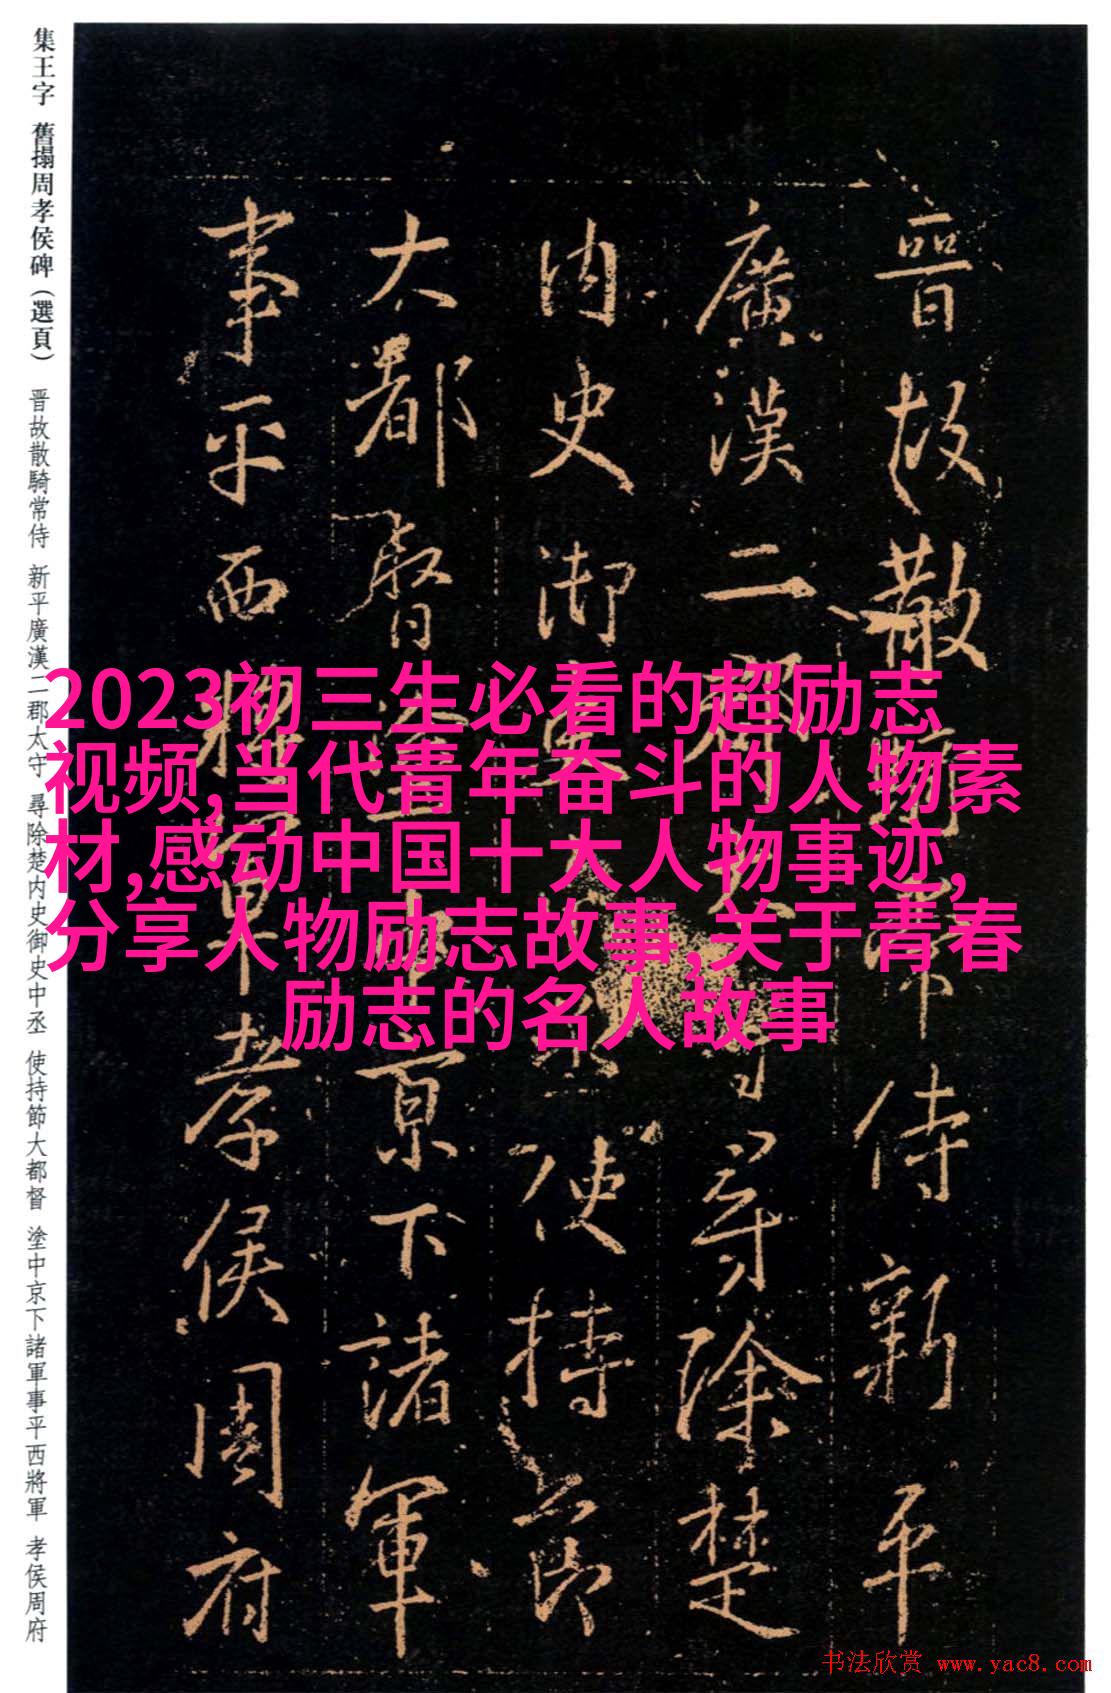 集王字 舊搨周孝侯碑（選頁） 晋故散騎常侍 新平廣漢二郡太守 尋除楚内史御史中丞 使持節大都督 塗中京下諸軍事平西將軍 孝侯周府
晉故散騎常侍新平
廣漢二郡太守尋除楚
内史御史中丞使持節
大都督塗中京下諸軍
事平西將軍孝侯周府
2023初三生必看的超励志
视频,当代青年奋斗的人物素
材,感动中国十大人物事迹,
分享人物励志故事,关于青春
励志的名人故事
书法欣赏 www.yac8.com